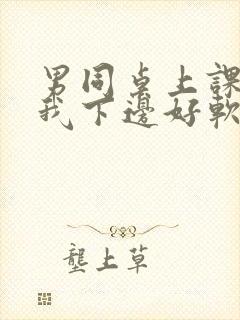 男同桌上課
我下邊好軟
壟上草